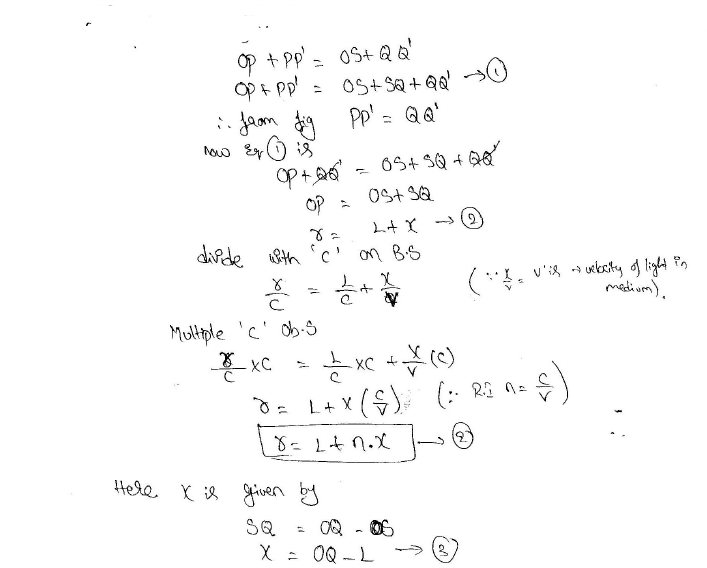 OP + PP' = OS + QQ'
OP + PP' = OS + SQ + QQ' → ①
∴ from fig PP' = QQ'
now Eq ① is
OP + QQ' = OS + SQ + QQ'
OP = OS + SQ
r = L + X → ②
divide with 'C' on B.S
r/C = L/C + X/V (∵ = V' is → velocity of light in medium).
Multiple 'C' ob.S
r/C × C = L/C × C + X/V (C)
r = L + X (C/V) (∵ R.I n = C/V)
r = L + n.X → ②
Here X is given by
SQ = OQ - OS
X = OQ - L → ③